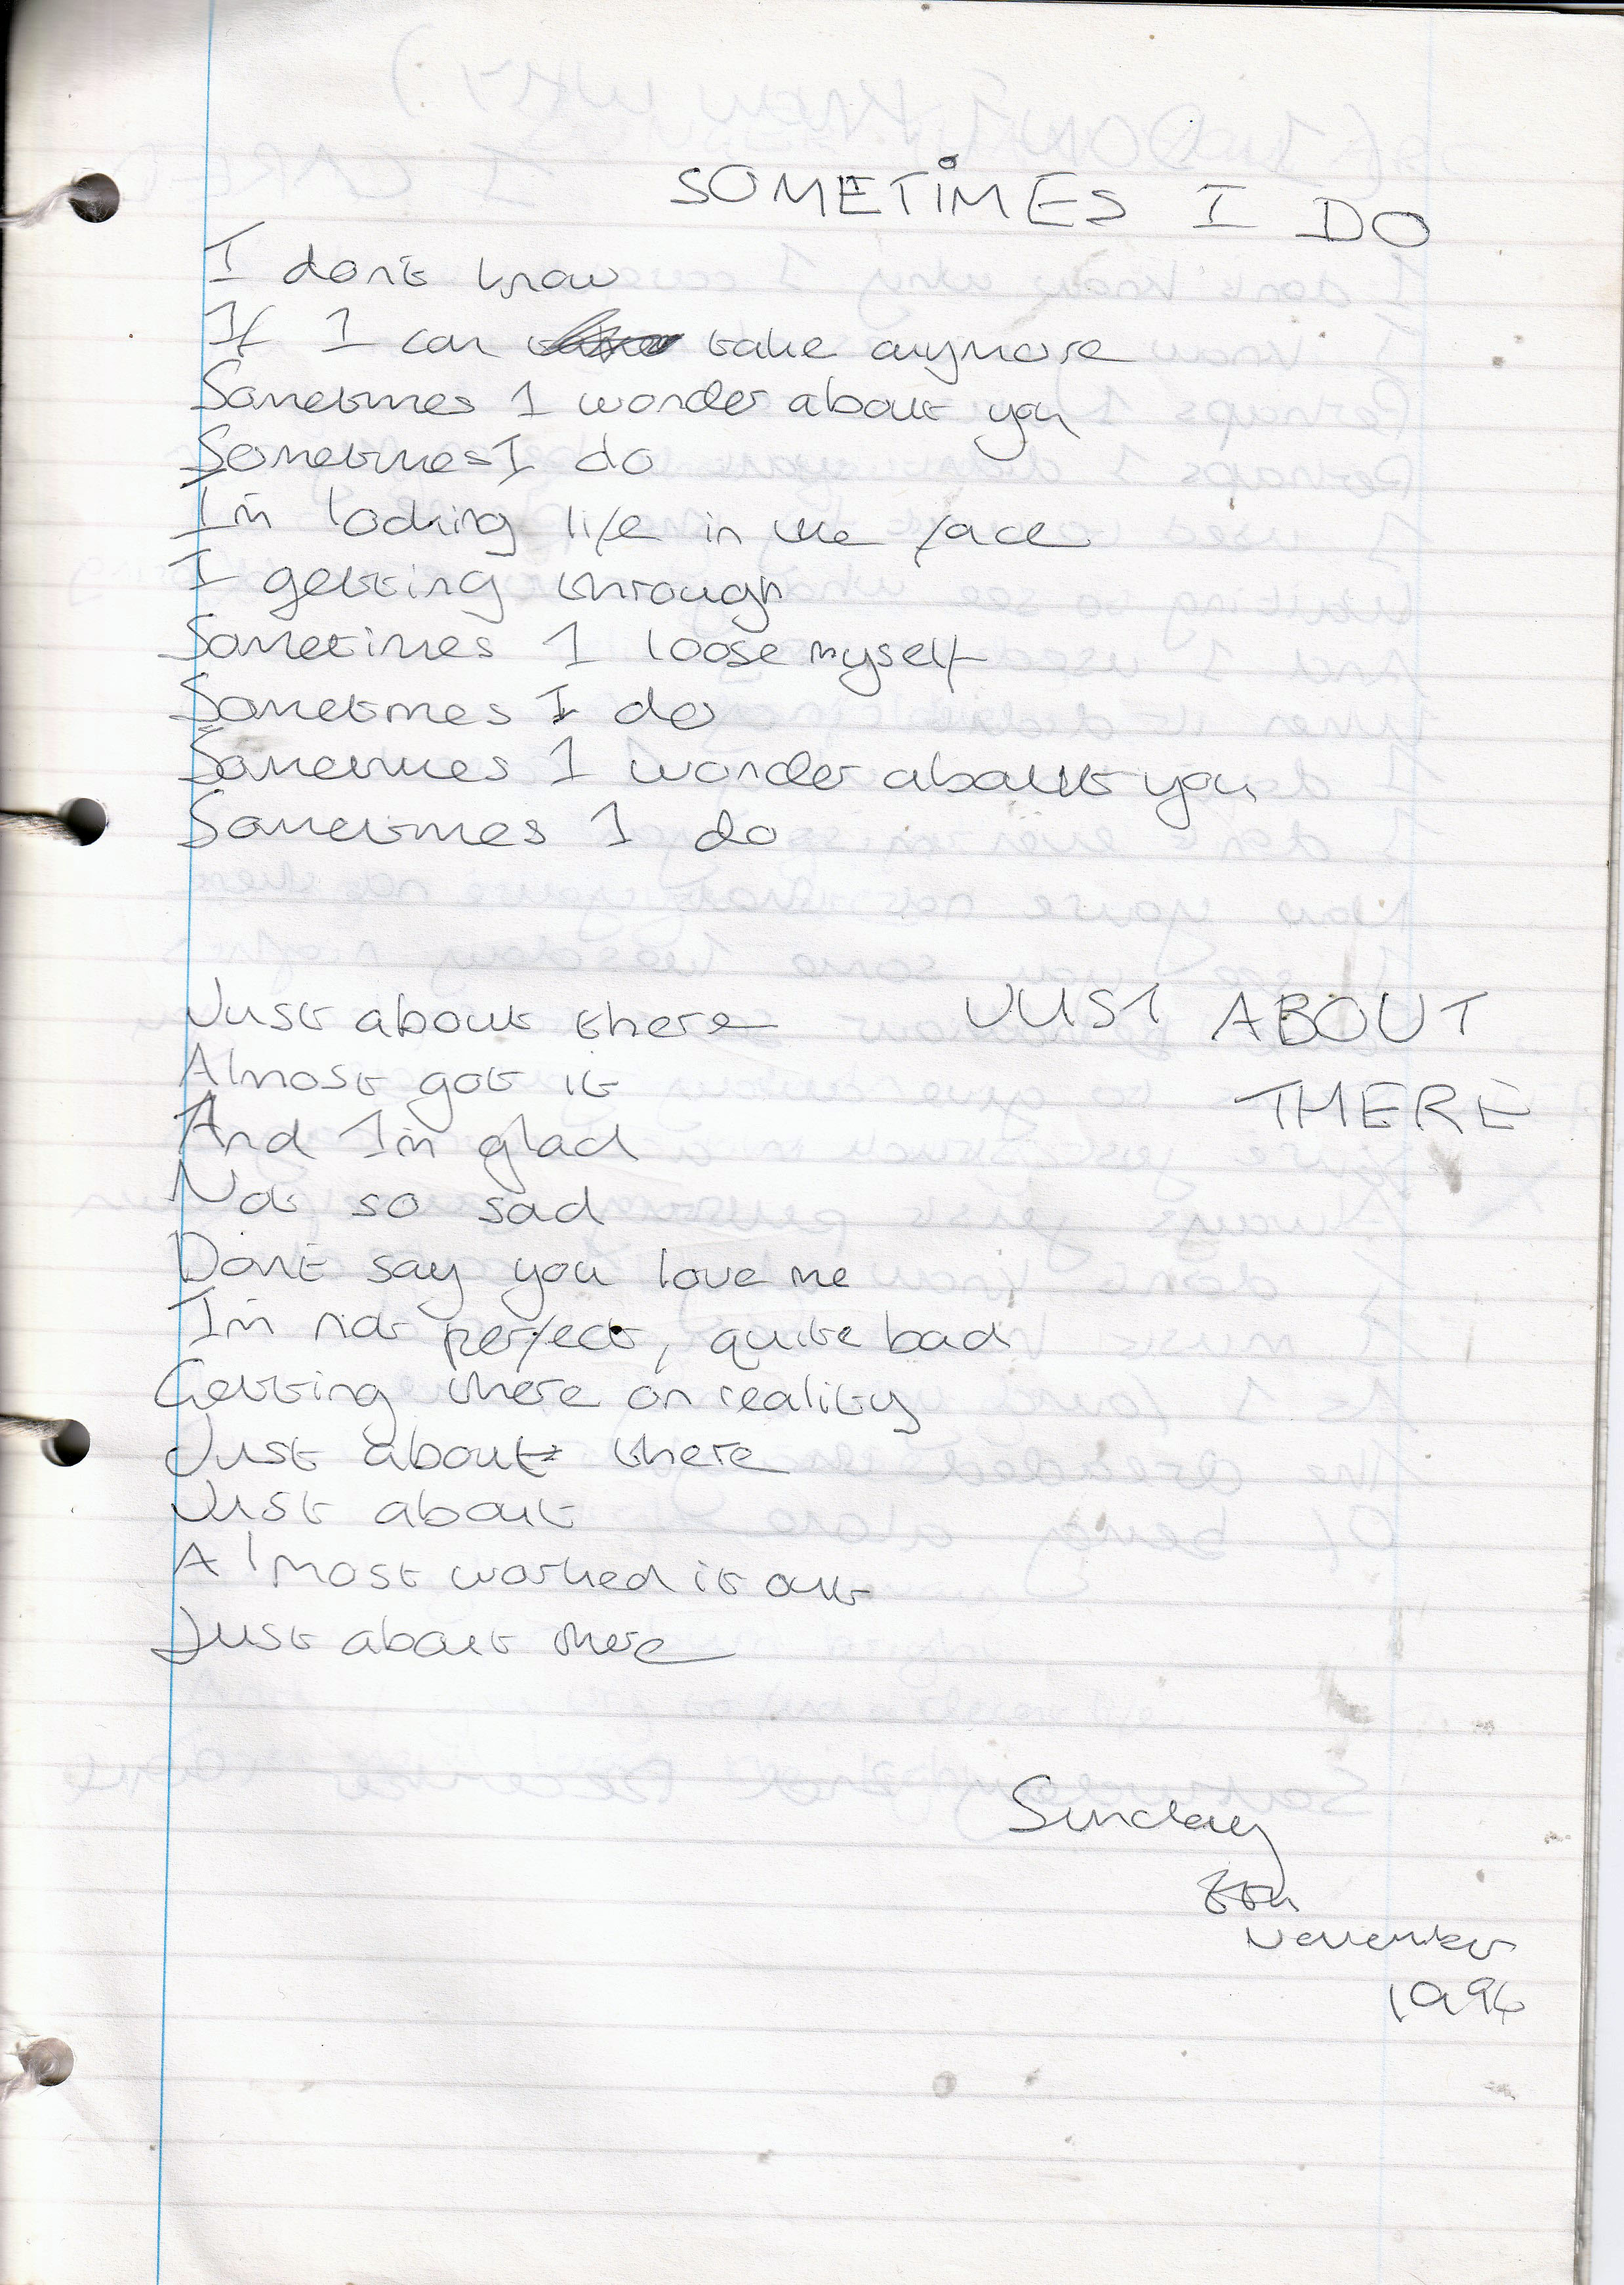 SOMETIMES I DO
I don't know
If I can take anymore
Sometimes I wonder about you
Sometimes I do
I'm looking life in the face
I getting through
Sometimes I loose myself
Sometimes I do
Sometimes I wonder about you
Sometimes I do
JUST ABOUT
THERE
Just about there
Almost got it
And I'm glad
Not so sad
Don't say you love me
I'm not perfect, quite bad
Getting there on reality
Just about there
Just about
Almost worked it out
Just about there
Sunday
November
1996